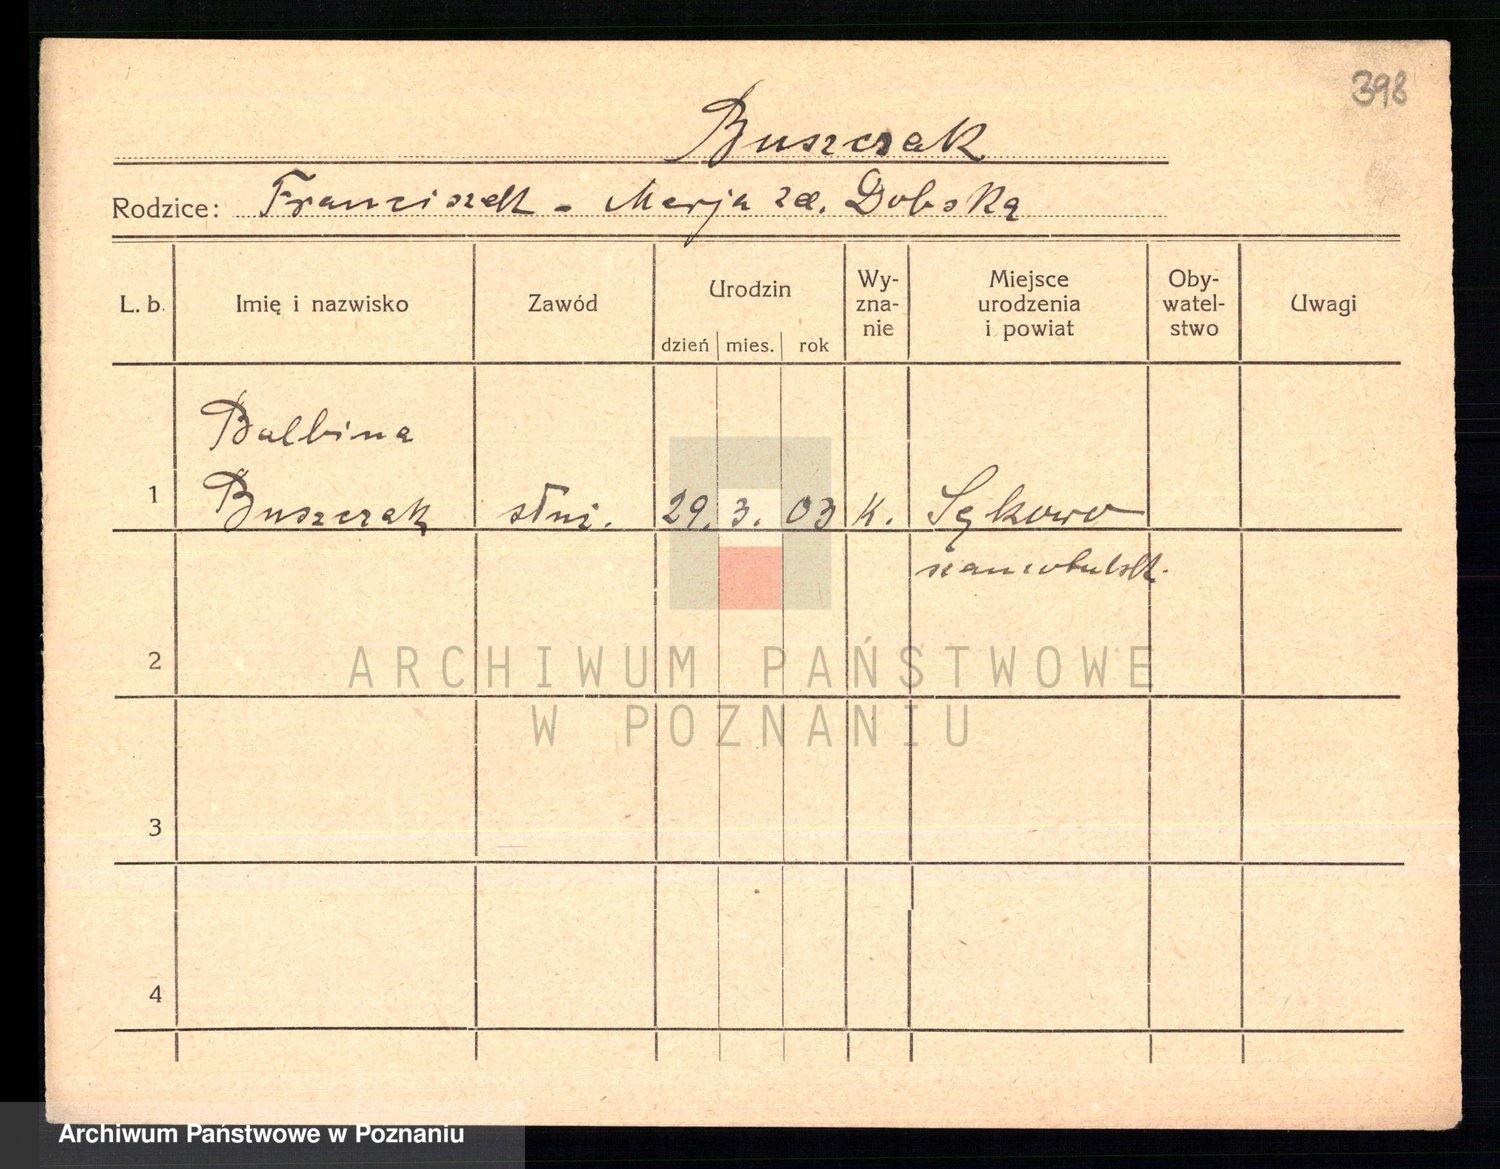 398
Buszczak
Rodzice: Franciszek - Marja zd. Dobską
L. b. Imię i nazwisko Zawód Urodzin Wy-zna-nie Miejsce urodzenia i powiat Oby-watel-stwo Uwagi
dzień mies. rok
Balbina
1 Buszczak służ. 29. 3. 03 k. Sękowo
szamotulsk.
2
ARCHIWUM PAŃSTWOWE
W POZNANIU
3
4
Archiwum Państwowe w Poznaniu